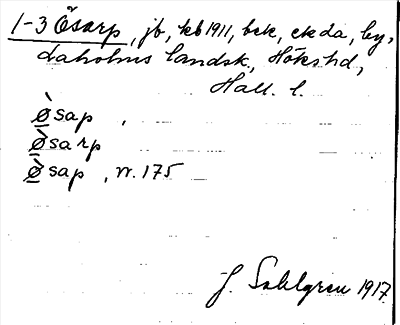 1-3 Ösarp, jb, kb 1911, bek, ekda, by,
Laholms landsk., Hökshd,
Hall. l.
ø̀sap ,
ø̀sarp
ø̀sap , vr. 175
J. Sahlgren 1917